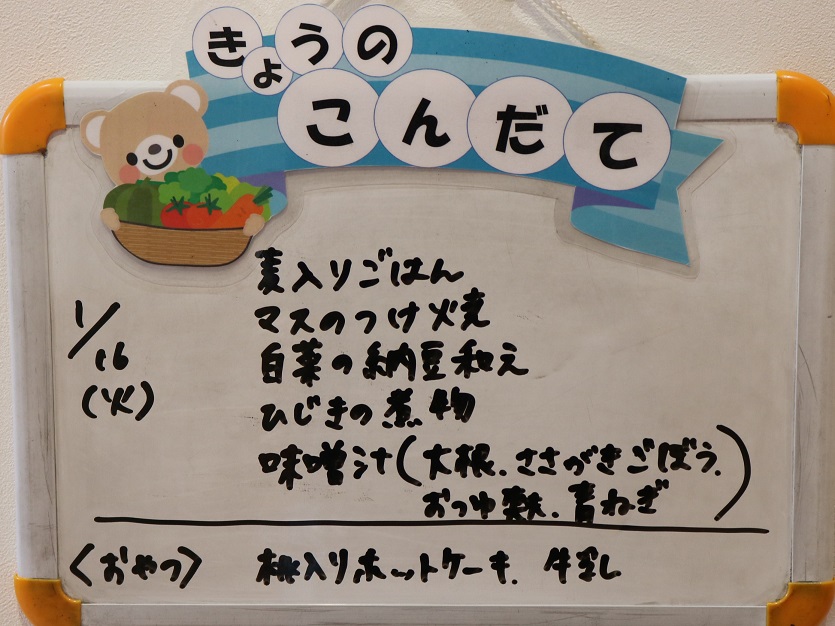 きょうの
こんだて
1/16
(火)
麦入りごはん
マスのつけ火焼
白菜の納豆和え
ひじきの煮物
味噌汁(大根、ささがきごぼう、
おつゆ麩、青ねぎ)
〈おやつ〉 桃入りホットケーキ、牛乳